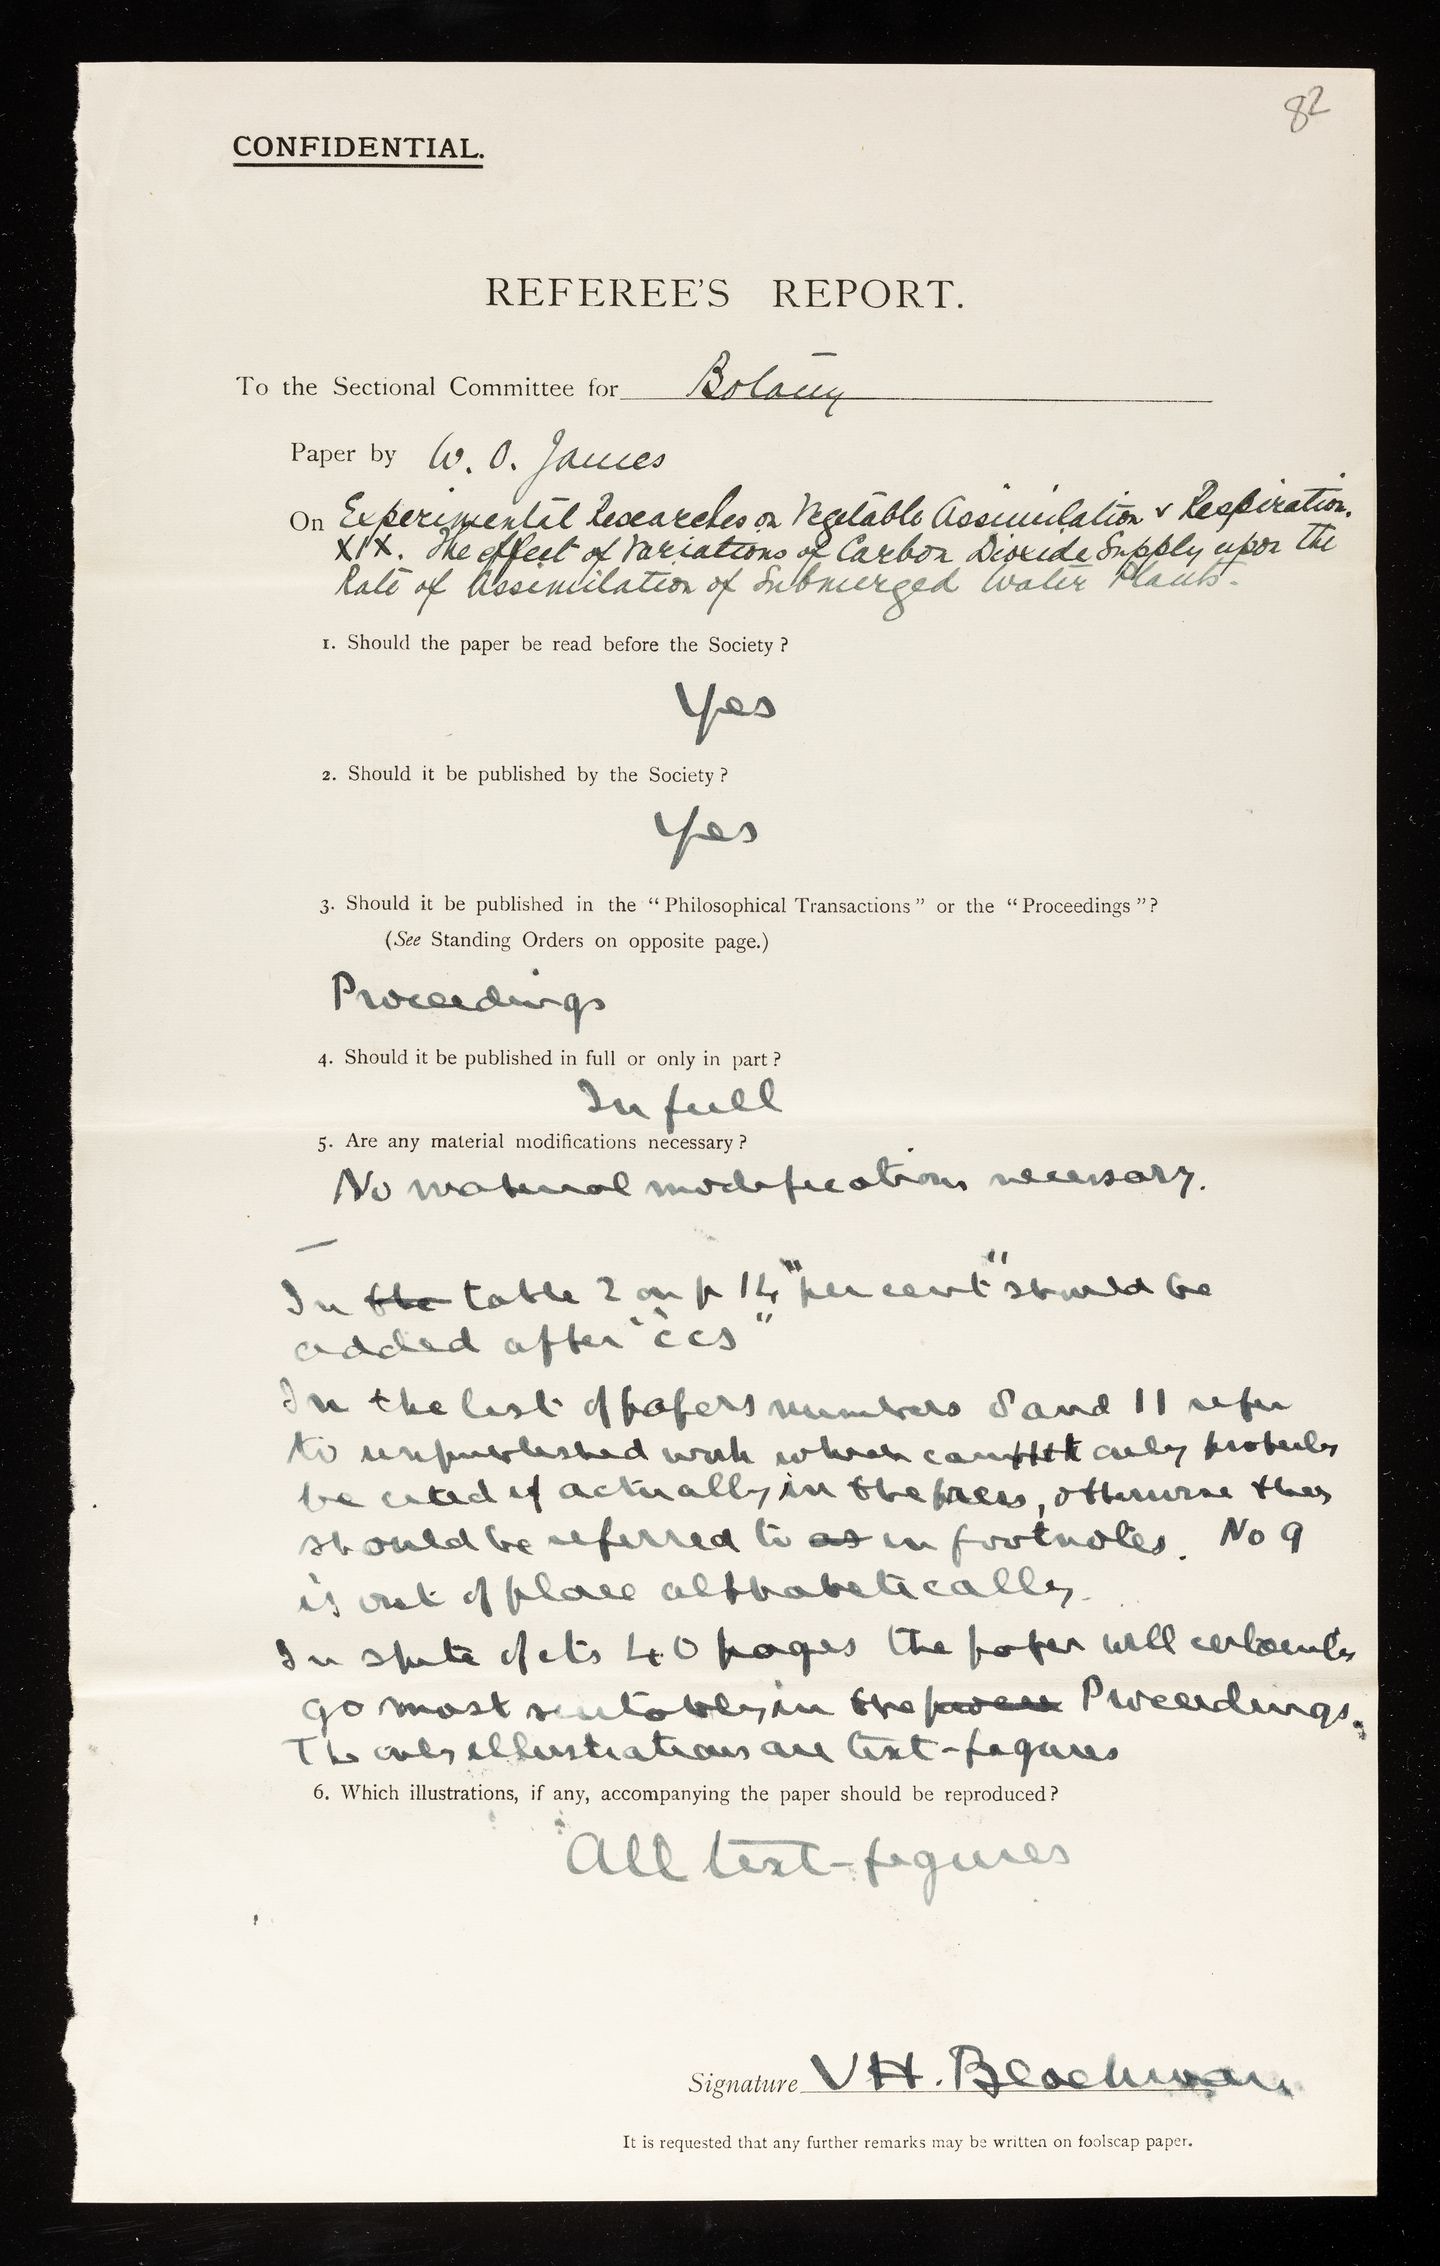 82
CONFIDENTIAL.
REFEREE'S REPORT.
To the Sectional Committee for Botany
Paper by W. O. James
On Experimental Researches on Vegetable Assimilation & Respiration.
XIX. The effect of Variations of Carbon Dioxide Supply upon the
Rate of Assimilation of Submerged Water Plants.
1. Should the paper be read before the Society?
Yes
2. Should it be published by the Society?
Yes
3. Should it be published in the "Philosophical Transactions" or the "Proceedings"?
(See Standing Orders on opposite page.)
Proceedings
4. Should it be published in full or only in part?
In full
5. Are any material modifications necessary?
No material modifications necessary.
In the table 2 on p 14 "per cent" should be
added after "ccs"
In the list of papers numbers 8 and 11 refer
to unpublished work which can only properly
be cited if actually in the press, otherwise they
should be referred to as in footnotes. No 9
is out of place alphabetically.
In spite of its 40 pages the paper will certainly
go most suitably in the Proceedings.
The only illustrations are text-figures
6. Which illustrations, if any, accompanying the paper should be reproduced?
All text-figures
Signature V H. Blackman
It is requested that any further remarks may be written on foolscap paper.